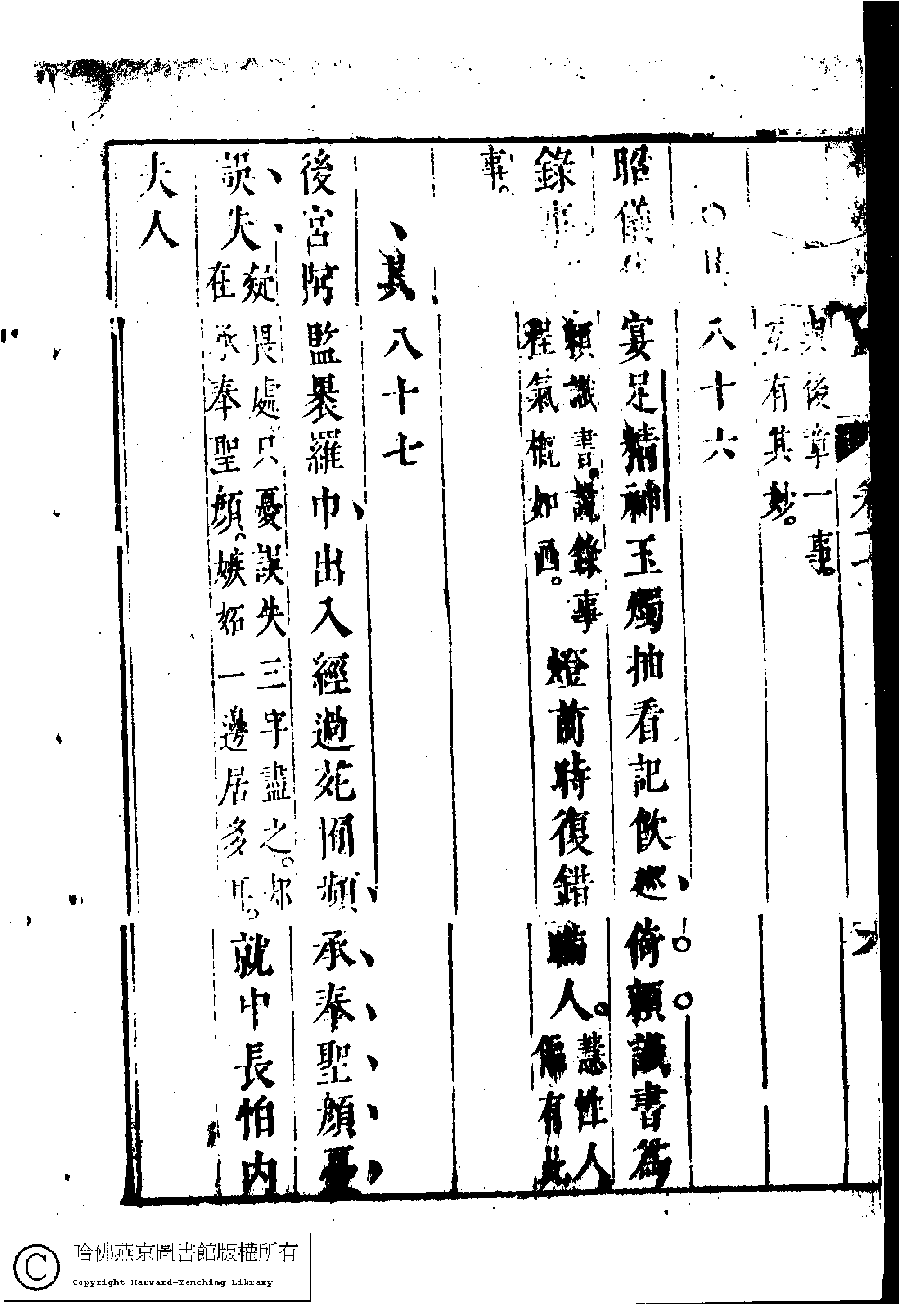 與後章一事。
互有其妙。
八十六
昭儀侍宴足精神玉燭抽看記飲巡倚賴識書為
錄事
賴識書。說錄事
程氣概如画。
燈前時復錯瞞人。
慧性人
偏有此
事。
其八十七
後宮阿監裹羅巾、出入經過苑囿頻承奉聖顏憂
誤失
疑畏處只憂誤失三字盡之。却
在承奉聖顏。嫉妬一邊居多耳。
就中長怕内
夫人
哈佛燕京圖書館版權所有
Copyright Harvard-Yenching Library